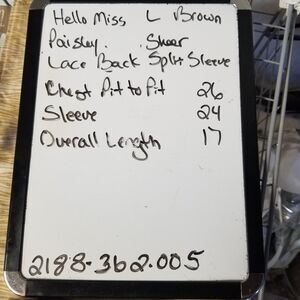 Hello Miss L Brown
Paisley. Sheer
Lace Back Split Sleeve
Chest Pit to Pit 26
Sleeve 24
Overall Length 17
2188-362.005